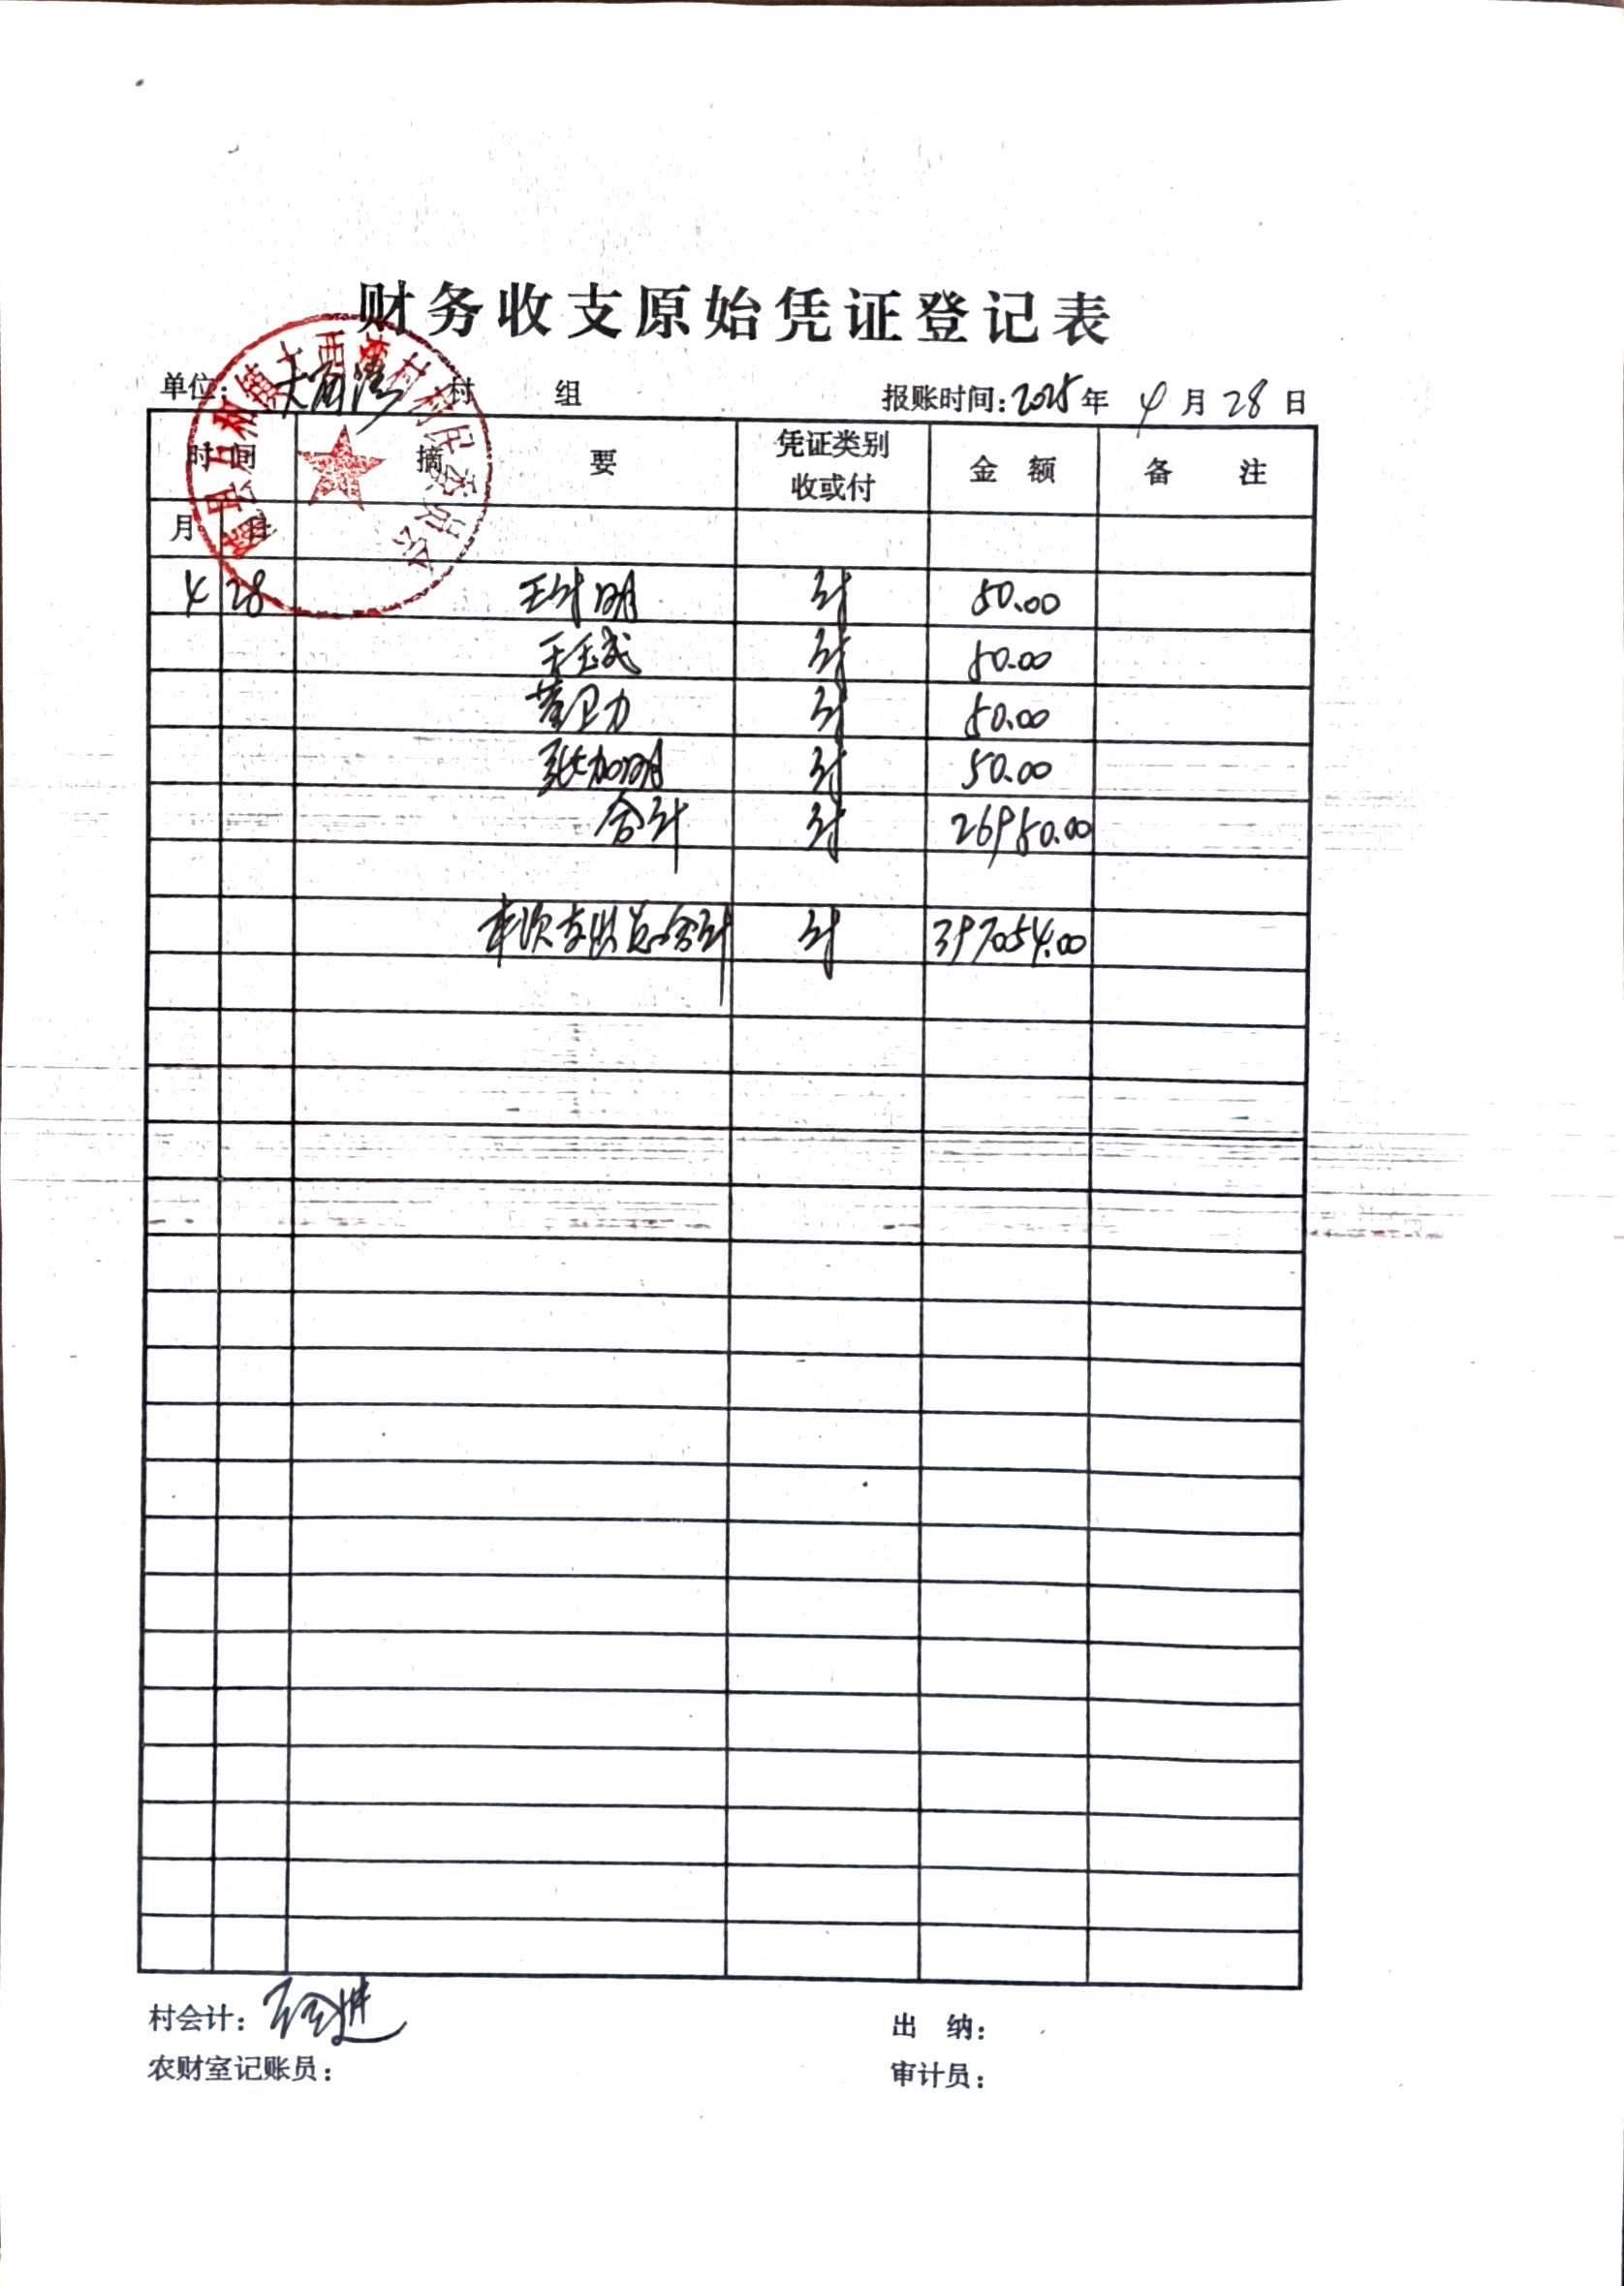 财务收支原始凭证登记表
单位: 大西湾 村 组 报账时间: 2025年 4月28日
时间 摘要 凭证类别 收或付 金额 备注
月 日
4 28 王计明 付 50.00
王玉武 付 50.00
董卫力 付 50.00
张加明 付 50.00
合计 付 26950.00
本次支出总合计 付 397054.00
村会计: 出纳:
农财室记账员: 审计员:
镇大西湾村村民委员会